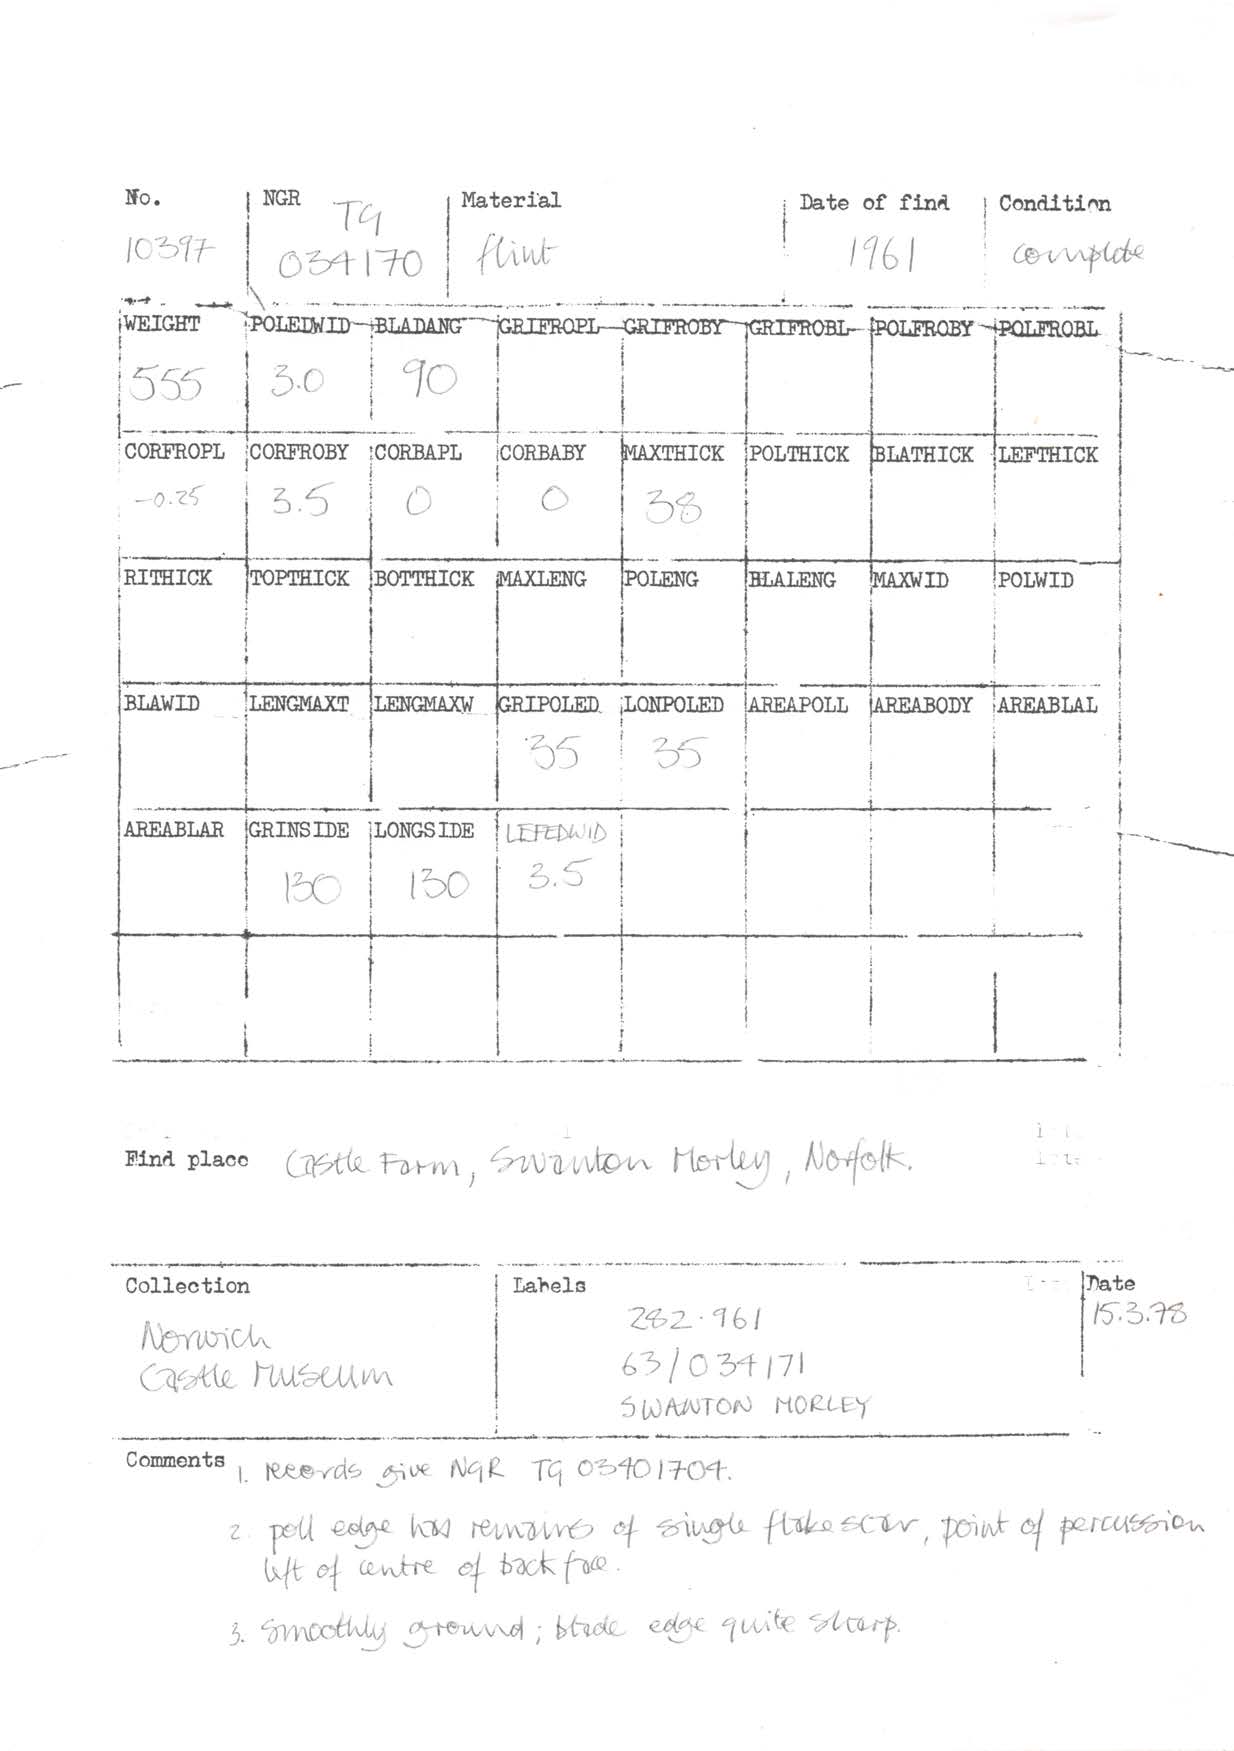 No. NGR Material Date of find Condition
TG
10397 034170 flint 1961 complete
WEIGHT POLEDWID BLADANG GRIFROPL GRIFROBY GRIFROBL POLFROBY POLFROBL
555 3.0 90
CORFROPL CORFROBY CORBAPL CORBABY MAXTHICK POLTHICK BLATHICK LEFTHICK
-0.25 3.5 0 0 38
RITHICK TOPTHICK BOTTHICK MAXLENG POLENG BLALENG MAXWID POLWID
BLAWID LENGMAXT LENGMAXW GRIPOLED LONPOLED AREAPOLL AREABODY AREABLAL
35 35
AREABLAR GRINSIDE LONGSIDE LEFEDWID
130 130 3.5
Find place Castle Farm, Swanton Morley, Norfolk.
Collection Labels Date
282.961 15.3.78
Norwich
63/034171
Castle Museum
SWANTON MORLEY
Comments 1. records give NGR TG 03401704.
2. poll edge has remains of single flake scar, point of percussion
left of centre of back face.
3. smoothly ground; blade edge quite sharp.